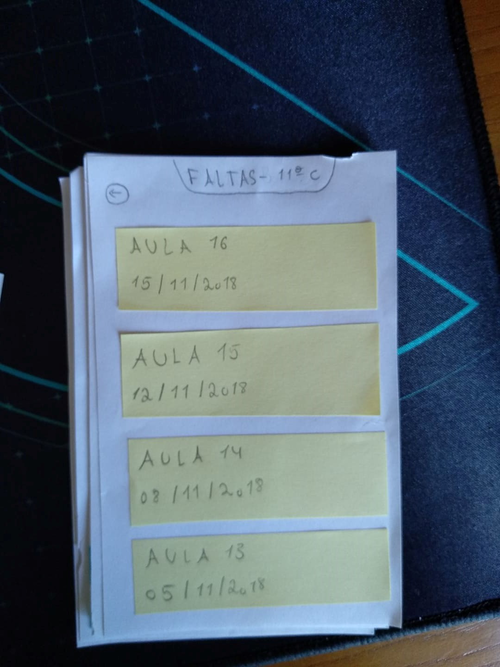 FALTAS- 11º C
AULA 16
15/11/2018
AULA 15
12/11/2018
AULA 14
08/11/2018
AULA 13
05/11/2018